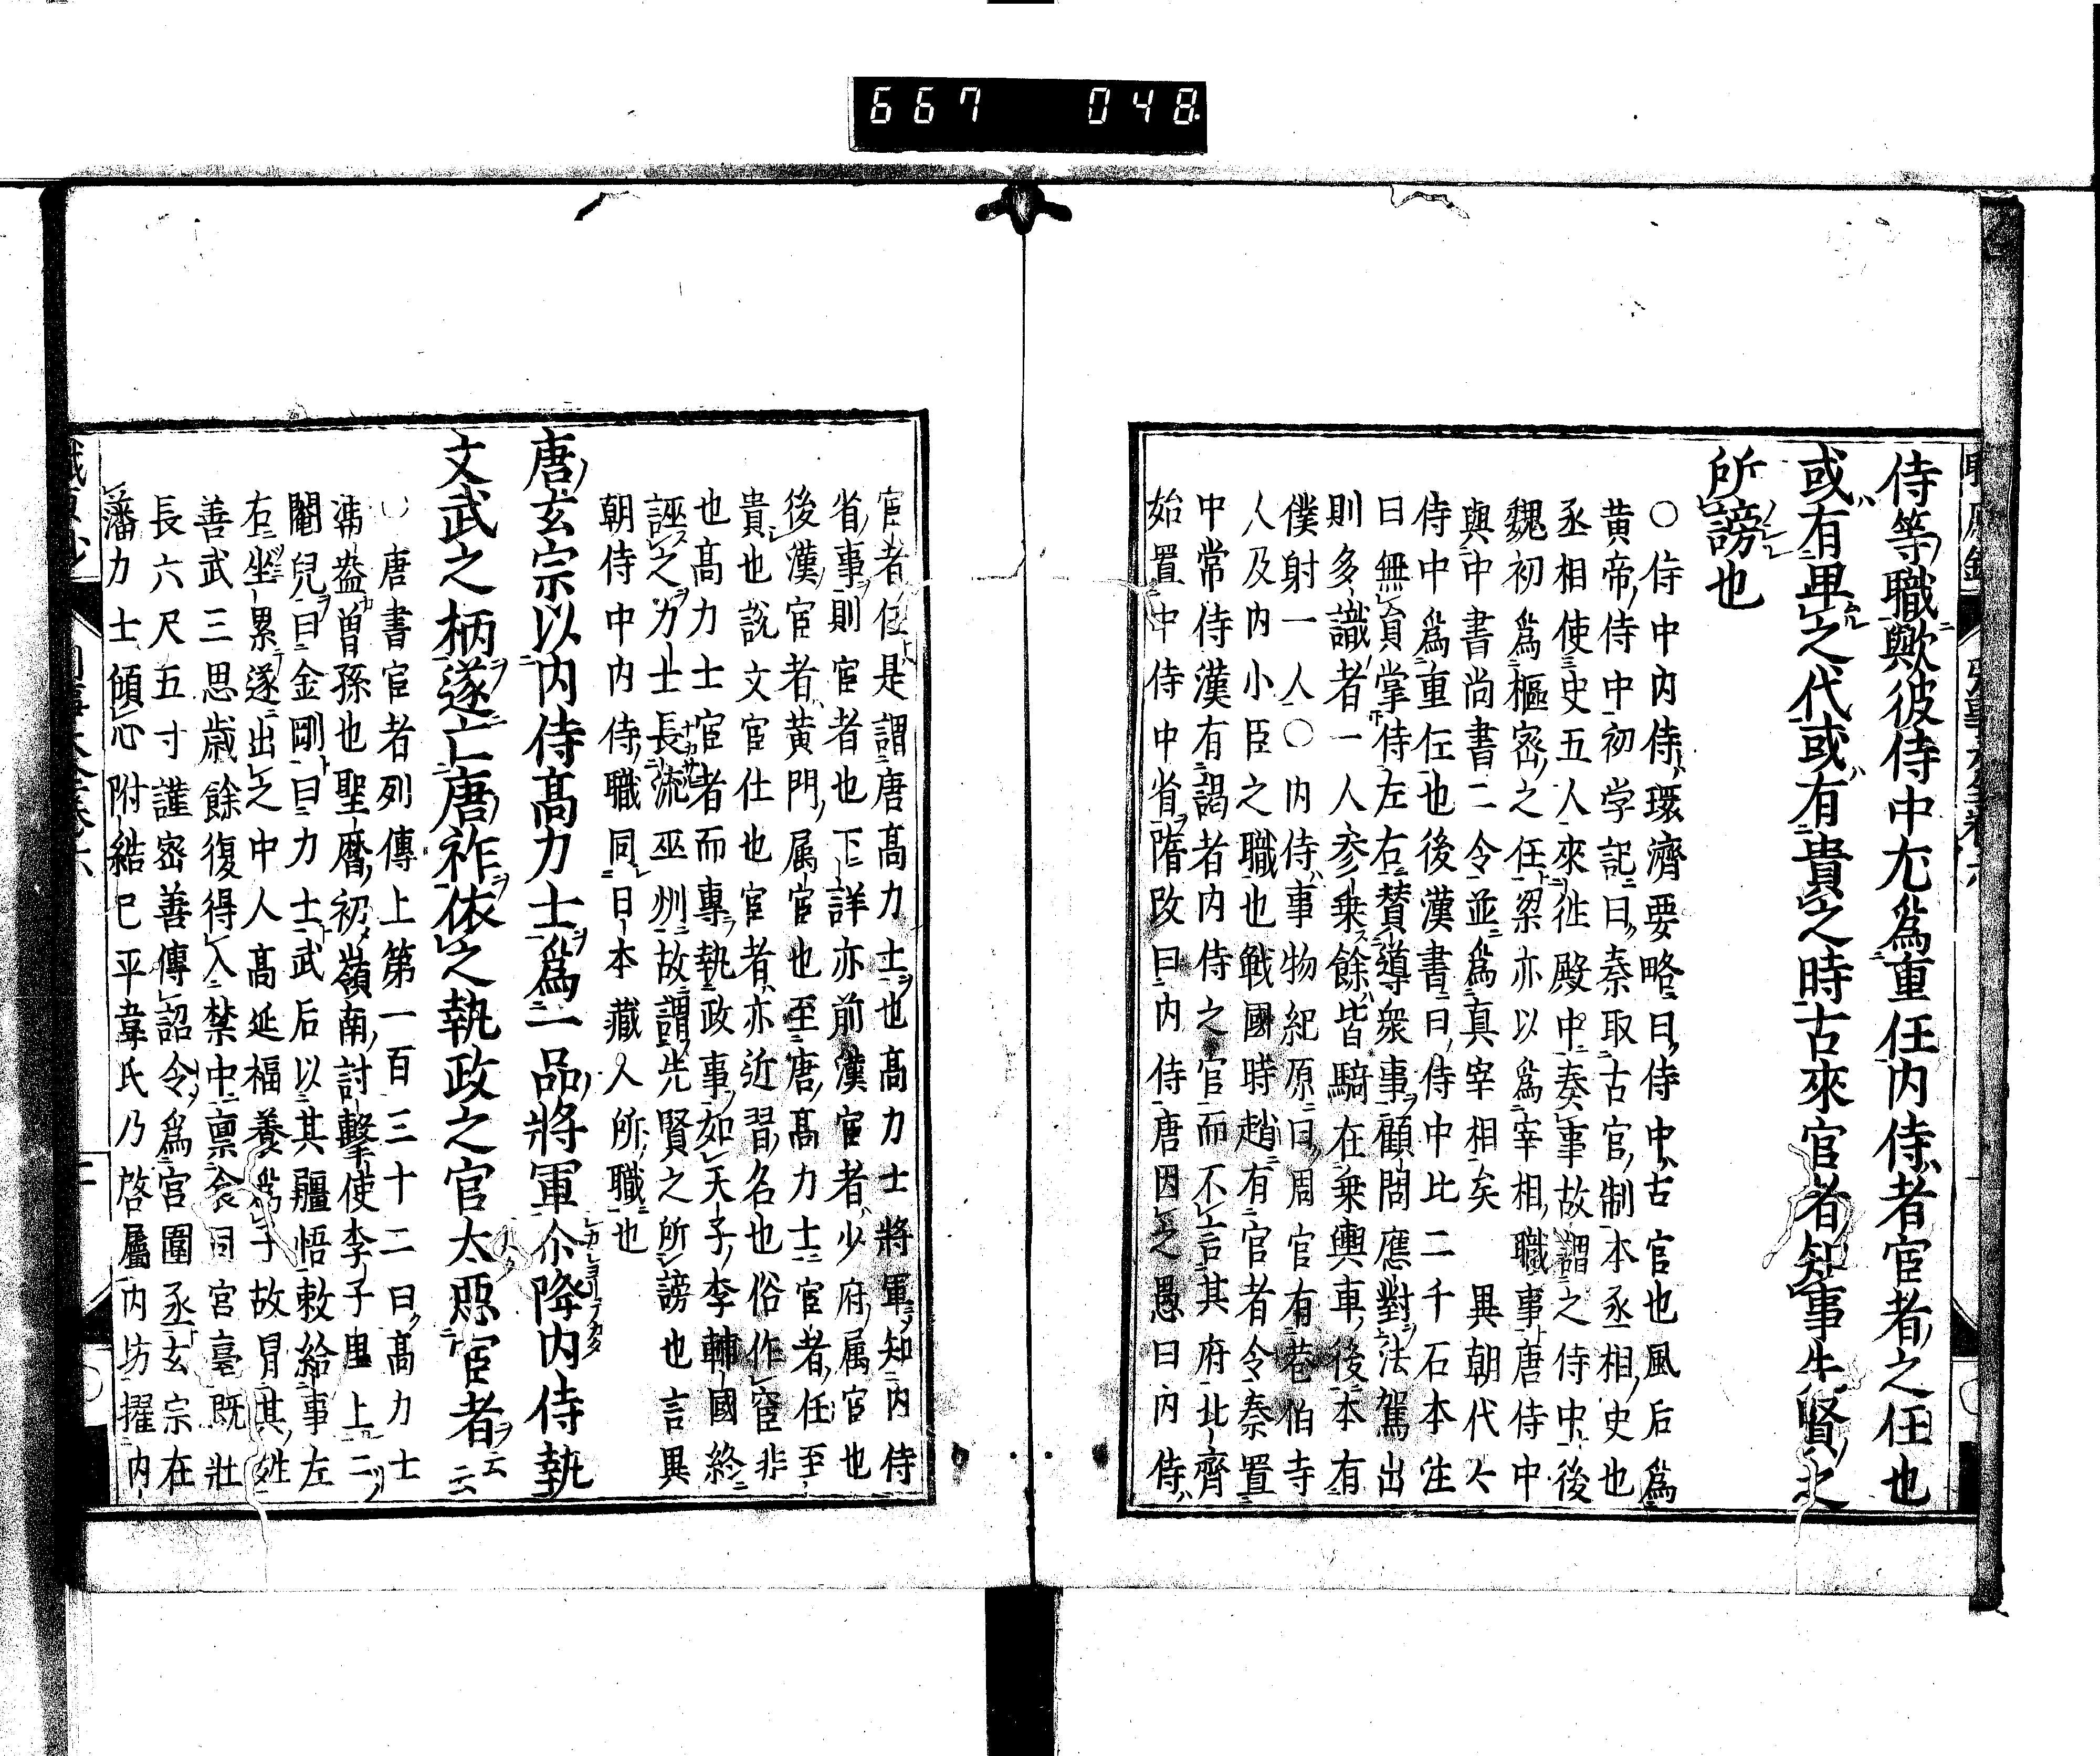 667 048
侍等職歟彼侍中尤爲重任内侍者宦者之任也
或有卑之代或有貴之時古來官者知事先賢之
所謗也
○侍中内侍環濟要略曰侍中古官也風后爲
黄帝侍中初学記曰秦取古官制本丞相史也
丞相使史五人來往殿中奏事故謂之侍中後
魏初爲樞宻之任梁亦以爲宰相職事唐侍中
與中書尚書二令並爲真宰相矣 異朝代々
侍中爲重任也後漢書曰侍中比二千石本注
曰無員掌侍左右賛導衆事顧問應對法駕出
則多識者一人參乗餘皆騎在乗輿車後本有
僕射一人○内侍事物紀原曰周官有巷伯寺
人及内小臣之職也戦國時趙有官者令秦置
中常侍漢有謁者内侍之官而不言其府北齊
始置中侍中省隋改曰内侍唐因之愚曰内侍
宦者任是謂唐髙力士也髙力士將軍知内侍
省事則宦者也下詳亦前漢宦者少府属官也
後漢宦者黄門属官也至唐髙力士宦者任至
貴也説文宦仕也宦者亦近習名也俗作䆠非
也髙力士宦者而專執政事如天子李輔國終
誣之力士長流巫州故謂先賢之所謗也言異
朝侍中内侍職同日本藏人所職也
唐玄宗以内侍髙力士爲一品將軍尒降内侍執
文武之柄遂亡唐祚依之執政之官太惡宦者云云
○唐書宦者列傳上第一百三十二曰髙力士
馮盎曽孫也聖暦初嶺南討擊使李千里上二
閹兒曰金剛曰力士武后以其彊悟敕給事左
右坐累逐出之中人髙延福養爲子故冒其姓
善武三思歳餘復得入禁中禀食司宮臺既壯
長六尺五寸謹宻善傳詔令爲宮闈丞玄宗在
藩力士傾心附結已平韋氏乃啓屬内坊擢内